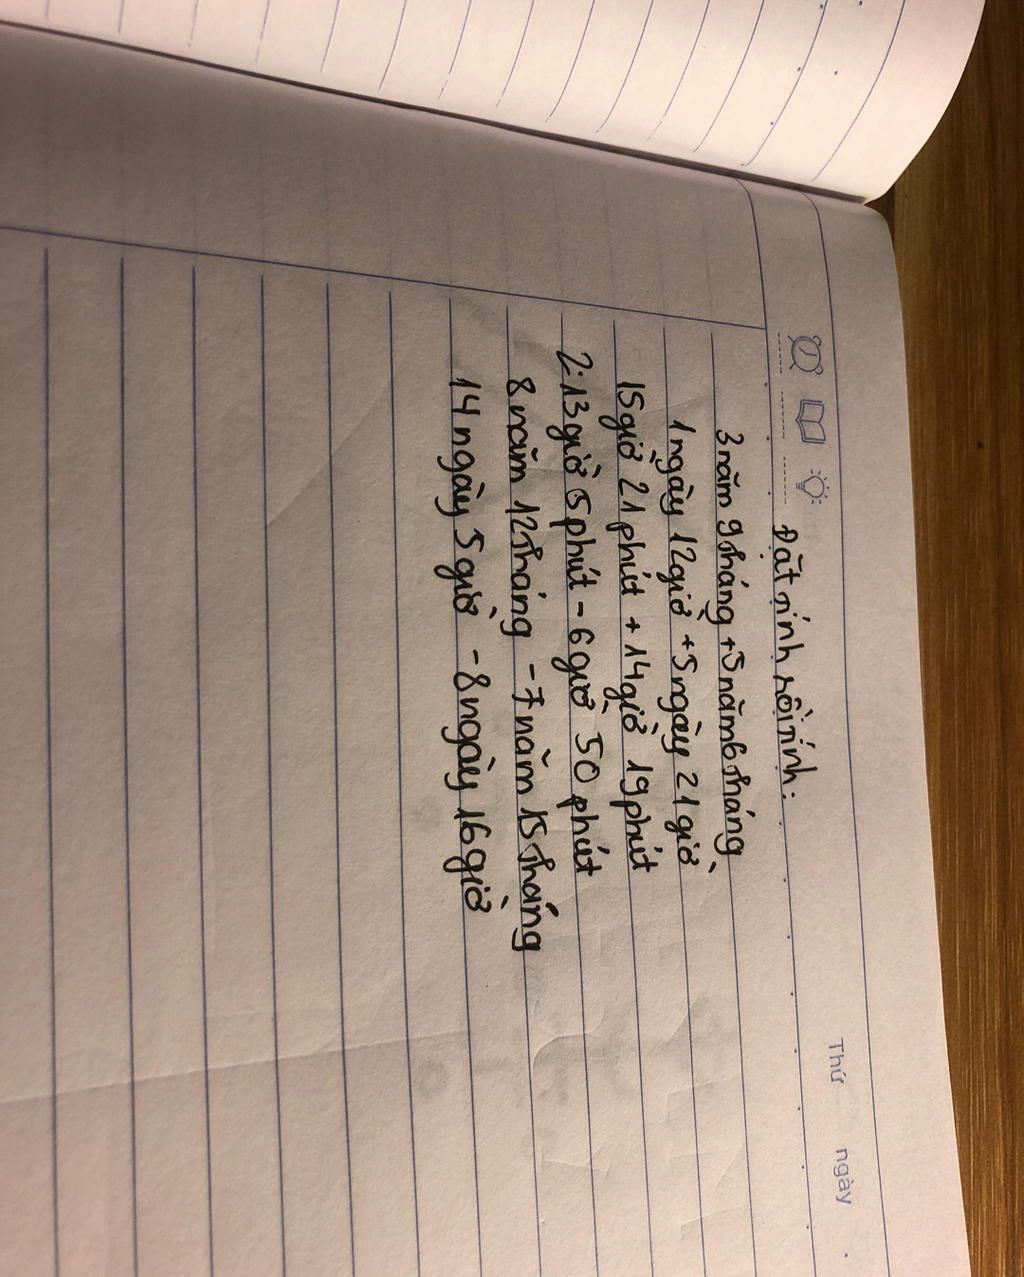 Thứ ngày
Đặt tính rồi tính:
3 năm 9 tháng + 5 năm 6 tháng
1 ngày 12 giờ + 5 ngày 21 giờ
15 giờ 21 phút + 14 giờ 19 phút
2: 13 giờ 5 phút - 6 giờ 50 phút
8 năm 12 tháng - 7 năm 15 tháng
14 ngày 5 giờ - 8 ngày 16 giờ